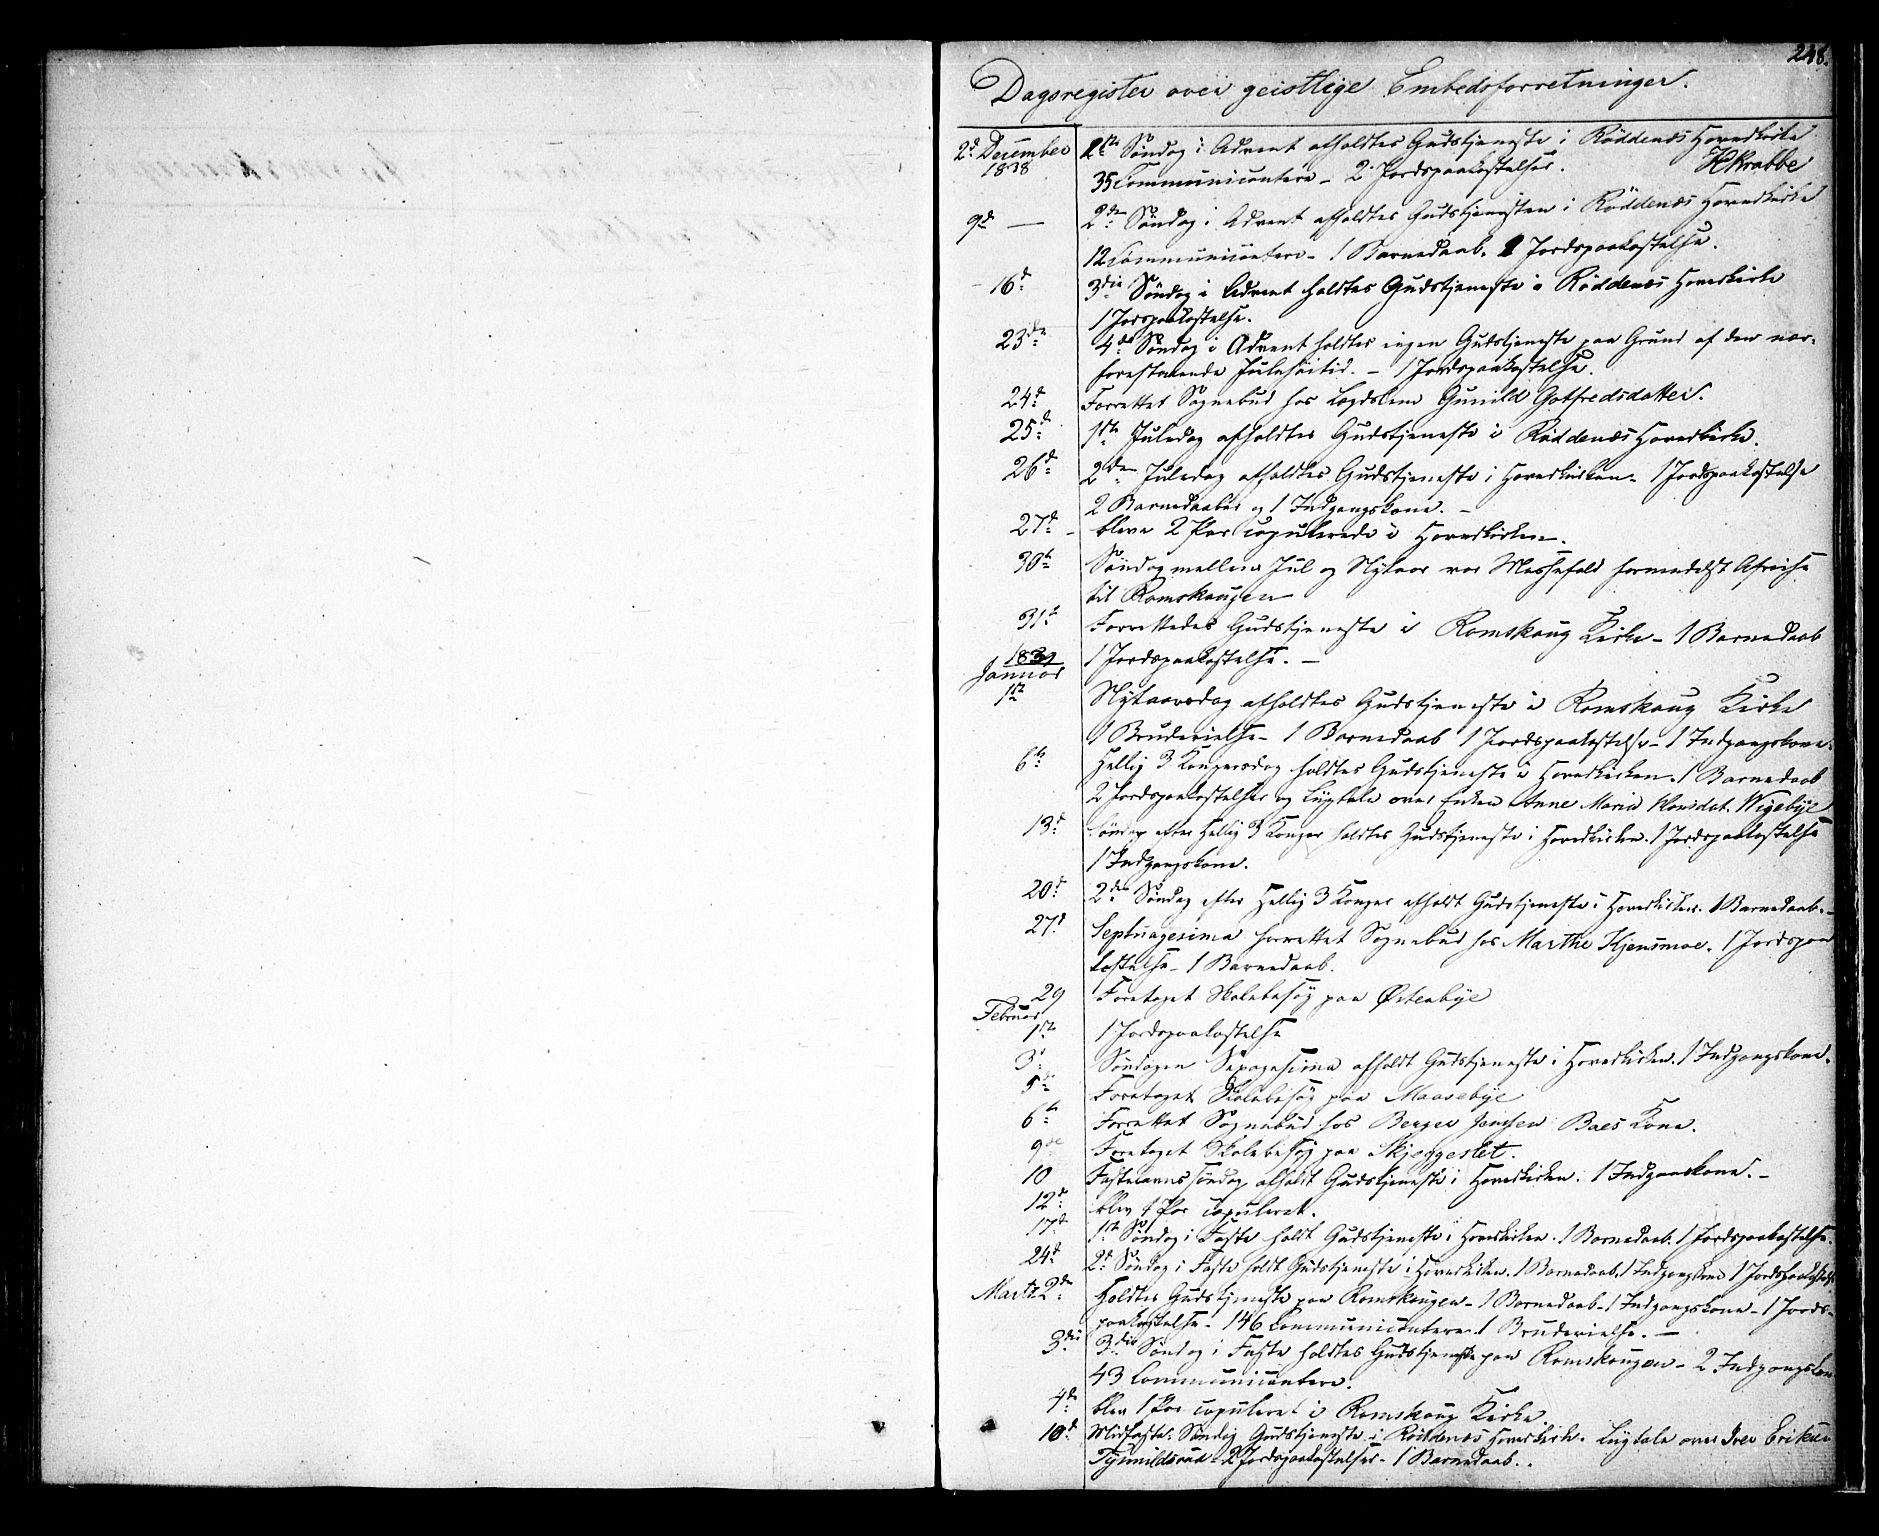 248.
Dagsregister over geistlige Embedsforretninger.
2d December 1838 1ste Søndag i Advent afholdtes Gudstjeneste i Röddenæs Hovedkirke
35 Communicantere – 2 Jordspaakastelser. HKrabbe
9d — 2den Søndag i Advent afholdtes Gudstjenesten i Röddenæs Hovedkirke
12 Communicantere – 1 Barnedaab. 1 Jordspaakastelse.
16d 3die Søndag i Advent holdtes Gudstjeneste i Röddenæs Hovedkirke
1 Jordspaakastelse.
23de 4de Søndag i Advent holdtes ingen Gudstjeneste paa Grund af den nær-
forestaaende Julehøitid. – 1 Jordspaakastelse.
24d Forrettet Sognebud hos Lægdslem Gunild Gotfredsdatter.
25d 1ste Juledag afholdtes Gudstjeneste i Röddenæs Hovedkirke.
26d 2den Juledag afholdtes Gudstjeneste i Hovedkirken – 1 Jordspaakastelse
2 Barnedaaber og 1 Indgangskone. –
27d – bleve 2 Par copulerede i Hovedkirken.
30te Søndag mellem Jul og Nytaar var Messefald formedelst Afreise
til Romskougen
31te Forrettedes Gudstjeneste i Romskoug Kirke – 1 Barnedaab
1 Jordspaakastelse. –
1839
Januar
1ste Nytaarsdag afholdtes Gudstjeneste i Romskoug Kirke
1 Brudevielse – 1 Barnedaab 1 Jordspaakastelse – 1 Indgangskone.
6te Hellig 3 Kongersdag holdtes Gudstjeneste i Hovedkirken. 1 Barnedaab
2 Jordspaakastelser og Liigtale over Enken Anne Maria Hansdat. Wigebÿe
13d Søndag efter Hellig 3 Konger holdtes Gudstjeneste i Hovedkirken. 1 Jordspaakastelse
1 Indgangskone.
20d 2den Søndag efter Hellig 3 Konger afholdt Gudstjeneste i Hovedkirken. 1 Barnedaab. –
27d Septuagesima forrettet Sognebud hos Marthe Kjensmoe. 1 Jordspaa
kastelse – 1 Barnedaab.
29 Foretaget Skolebesøg paa Østenbÿe
Februar
1ste 1 Jordspaakastelse
3d Søndagen Sexagesima afholdt Gudstjeneste i Hovedkirken. 1 Indgangskone.
5te Foretaget Skolebesøg paa Maasebÿe
6te Forrettet Sognebud hos Berger Jensen Baes Kone.
9de Foretaget Skolebesøg paa
10 Fastelavnssøndag afholdt Gudstjeneste i Hovedkirken. 1 Indgangskone. –
12te blev 1 Par copuleret.
17d 1ste Søndag i Faste holdt Gudstjeneste i Hovedkirken. 1 Barnedaab. 1 Jordspaakastelse.
24d 2d Søndag i Faste holdt Gudstjeneste i Hovedkirken. 1 Barnedaab. 1 Indgangskone 1 Jordspaakastelse
Martz 2den Holdtes Gudstjeneste paa Romskougen – 1 Barnedaab – 1 Indgangskone – 1 Jords-
paakastelse – 146 Communicantere. 1 Brudevielse. —
3die 3die Søndag i Faste holdtes Gudstjeneste paa Romskougen – 2 Indgangskon
43 Communicantere.
4de blev 1 Par copuleret i Romskoug Kirke.
10d Midfaste-Søndag Gudstjeneste i Röddenæs Hovedkirke. Liigtale over Iver Eriksen
2 Jordspaakastelser – 1 Barnedaab.